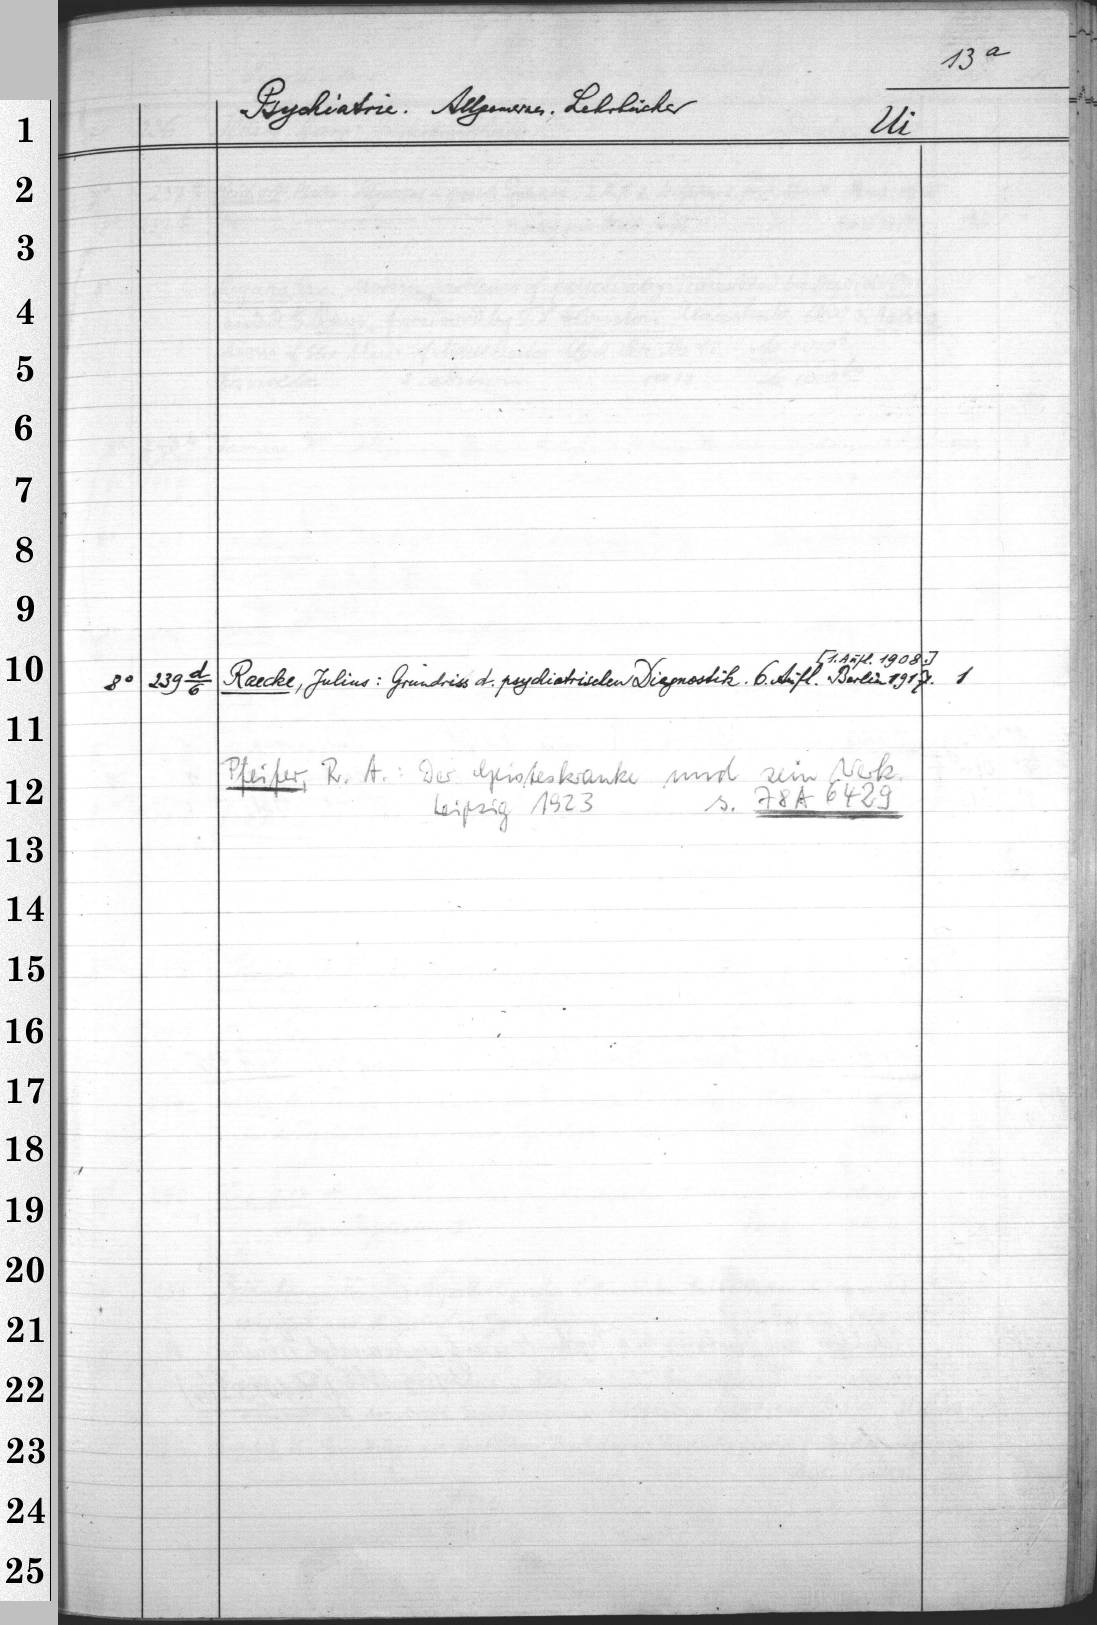 13 a
Psychiatrie. Allgemeines. Lehrbücher
Ui
1
2
3
4
5
6
7
8
9
[1. Aufl. 1908.]
10 8° 239 d/6 Raecke, Julius: Grundriss d. psychiatrischen Diagnostik. 6. Aufl. Berlin 1917. 1
11
Pfeifer, R. A.: Der Geisteskranke und sein Werk.
12 Leipzig 1923 s. 78 A 6429
13
14
15
16
17
18
19
20
21
22
23
24
25